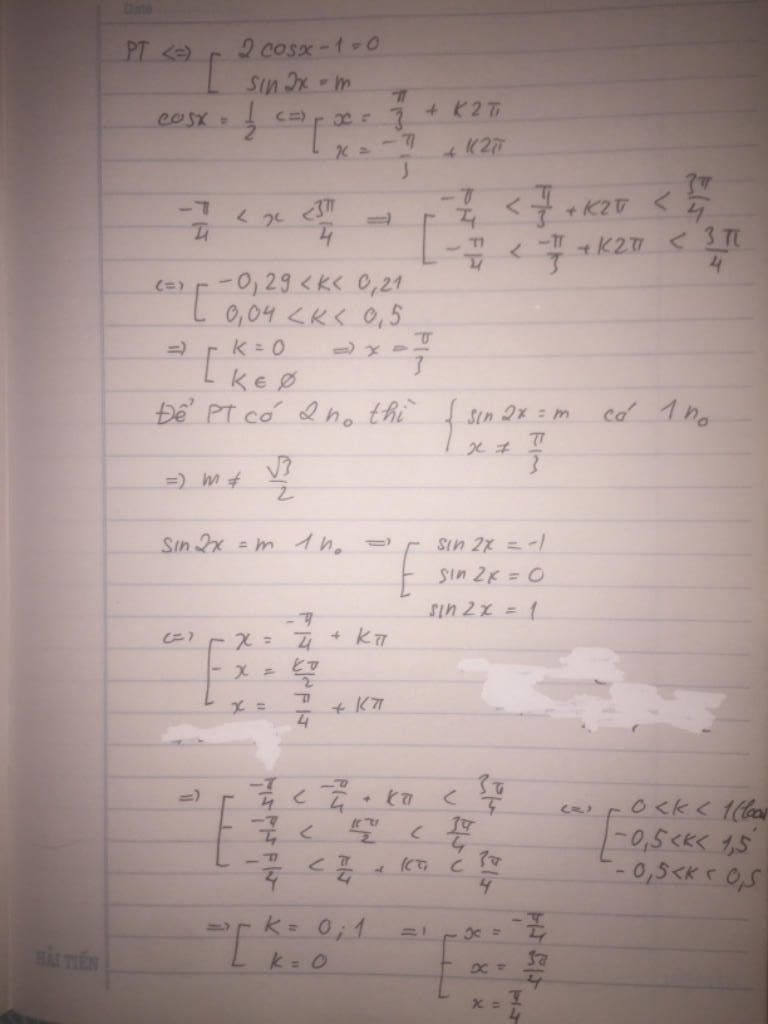 Date
PT <=> [ 2 cosx - 1 = 0
sin 2x = m
cosx = 1/2 <=> [ x = π/3 + K2π
x = -π/3 + K2π
-π/4 < x < 3π/4 => [ -π/4 < π/3 + K2π < 3π/4
-π/4 < -π/3 + K2π < 3π/4
<=> [ -0,29 < K < 0,21
0,04 < K < 0,5
=> [ K = 0 => x = π/3
K ∈ Ø
Để PT có 2 n₀ thì { sin 2x = m có 1 n₀
x ≠ π/3
=> m ≠ √3/2
sin 2x = m 1 n₀ => [ sin 2x = -1
sin 2x = 0
sin 2x = 1
<=> [ x = -π/4 + Kπ
x = Kπ/2
x = π/4 + Kπ
=> [ -π/4 < -π/4 + Kπ < 3π/4 <=> [ 0 < K < 1 (loại
-π/4 < Kπ/2 < 3π/4 -0,5 < K < 1,5
-π/4 < π/4 + Kπ < 3π/4 -0,5 < K < 0,5
=> [ K = 0; 1 => [ x = -π/4
K = 0 x = 3π/4
x = π/4
HẢI TIẾN